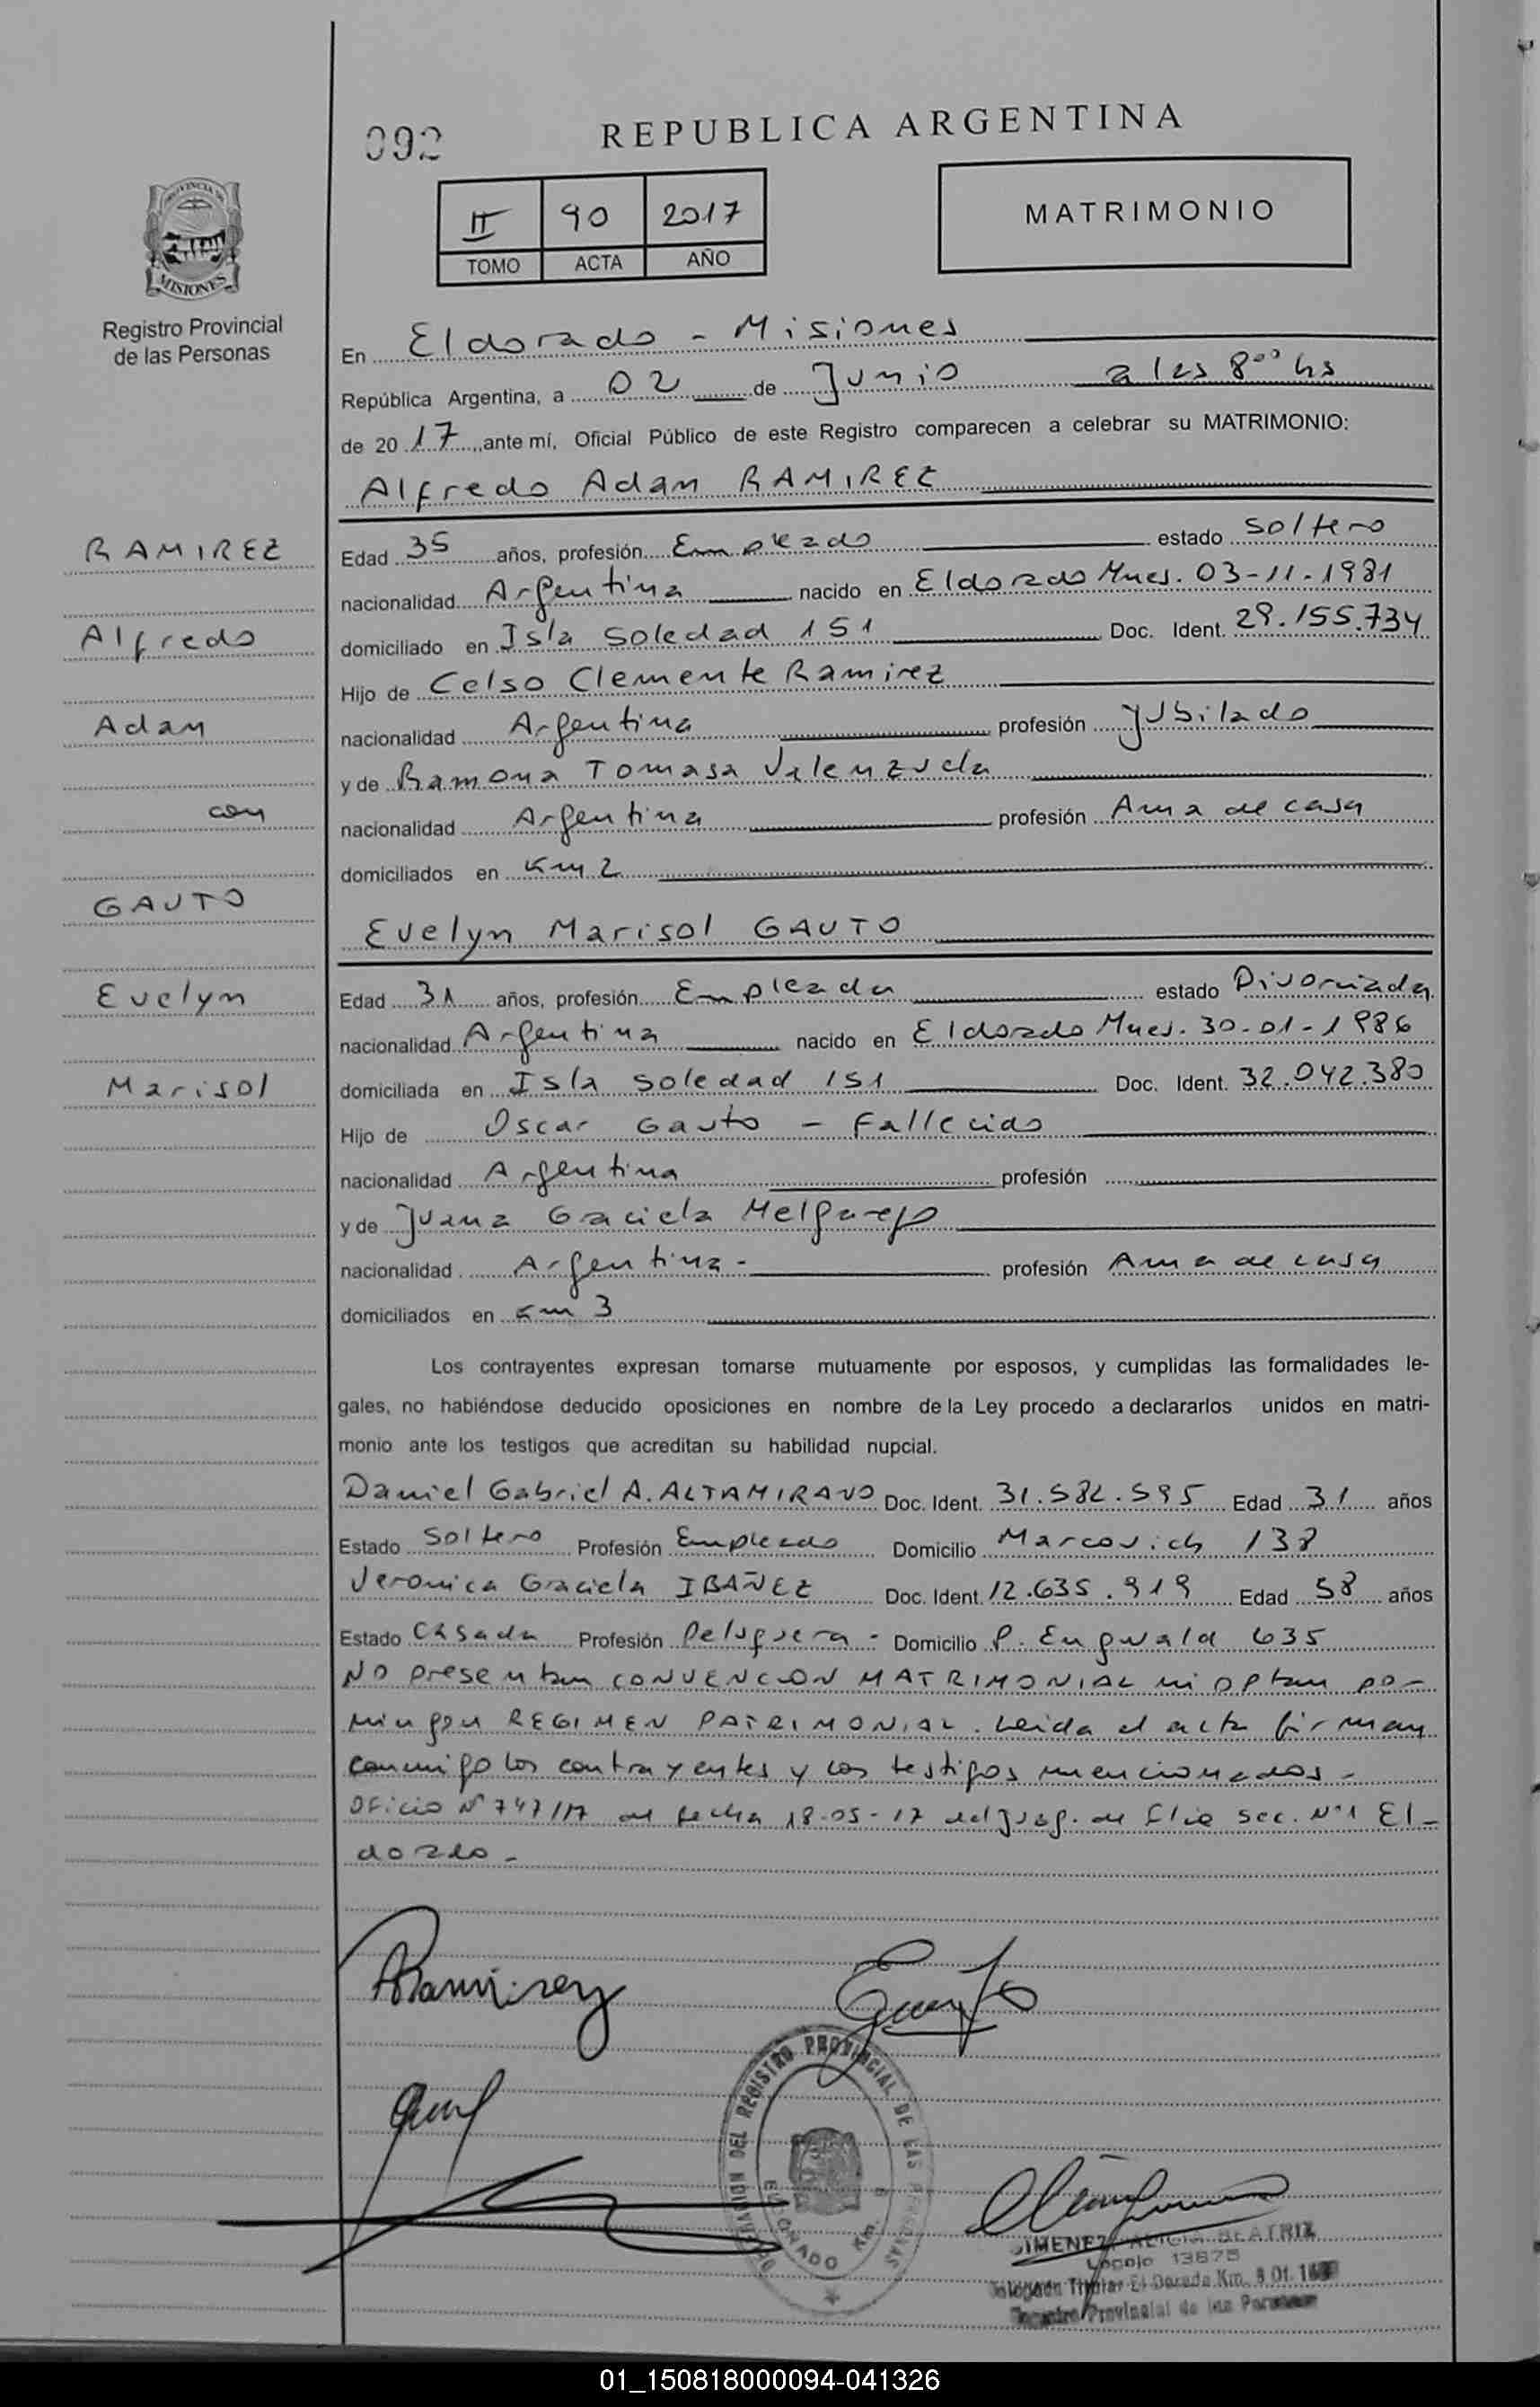 092
REPUBLICA ARGENTINA
II 90 2017
TOMO ACTA AÑO
MATRIMONIO
PROVINCIA DE
MISIONES
Registro Provincial
de las Personas
En Eldorado - Misiones
República Argentina, a 02 de Junio a las 8ºº hs
de 20 17, ante mí, Oficial Público de este Registro comparecen a celebrar su MATRIMONIO:
Alfredo Adan RAMIREZ
RAMIREZ
Alfredo
Adan
con
GAUTO
Evelyn
Marisol
Edad 35 años, profesión Empleado estado Soltero
nacionalidad Argentina nacido en Eldorado Mnes. 03-11-1981
domiciliado en Isla Soledad 151 Doc. Ident. 29.155.734
Hijo de Celso Clemente Ramirez
nacionalidad Argentina profesión Jubilado
y de Ramona Tomasa Valenzuela
nacionalidad Argentina profesión Ama de casa
domiciliados en Km 2
Evelyn Marisol GAUTO
Edad 31 años, profesión Empleada estado Divorciada
nacionalidad Argentina nacido en Eldorado Mnes. 30-01-1986
domiciliada en Isla Soledad 151 Doc. Ident. 32.042.380
Hijo de Oscar Gauto - Fallecido
nacionalidad Argentina profesión
y de Juana Graciela Melgarejo
nacionalidad Argentina - profesión Ama de casa
domiciliados en Km 3
Los contrayentes expresan tomarse mutuamente por esposos, y cumplidas las formalidades le-
gales, no habiéndose deducido oposiciones en nombre de la Ley procedo a declararlos unidos en matri-
monio ante los testigos que acreditan su habilidad nupcial.
Daniel Gabriel A. ALTAMIRANO Doc. Ident. 31.582.595 Edad 31 años
Estado Soltero Profesión Empleado Domicilio Marcovich 138
Veronica Graciela IBAÑEZ Doc. Ident. 12.635.919 Edad 58 años
Estado Casada Profesión Peluquera - Domicilio P. Engwald 635
No presentan CONVENCION MATRIMONIAL ni optan por
ningun REGIMEN PATRIMONIAL. Leida el acta firman
conmigo los contrayentes y los testigos mencionados -
Oficio Nº 747/17 de fecha 18-05-17 del Juzg. de Flia Sec. Nº1 El-
dorado -
Ramirez
Gauto
DELEGACION DEL REGISTRO PROVINCIAL DE LAS PERSONAS
ELDORADO Km. 8
JIMENEZ ALICIA BEATRIZ
Legajo 13875
Delegada Titular El Dorado Km. 8 01
Registro Provincial de las Personas
01_150818000094-041326